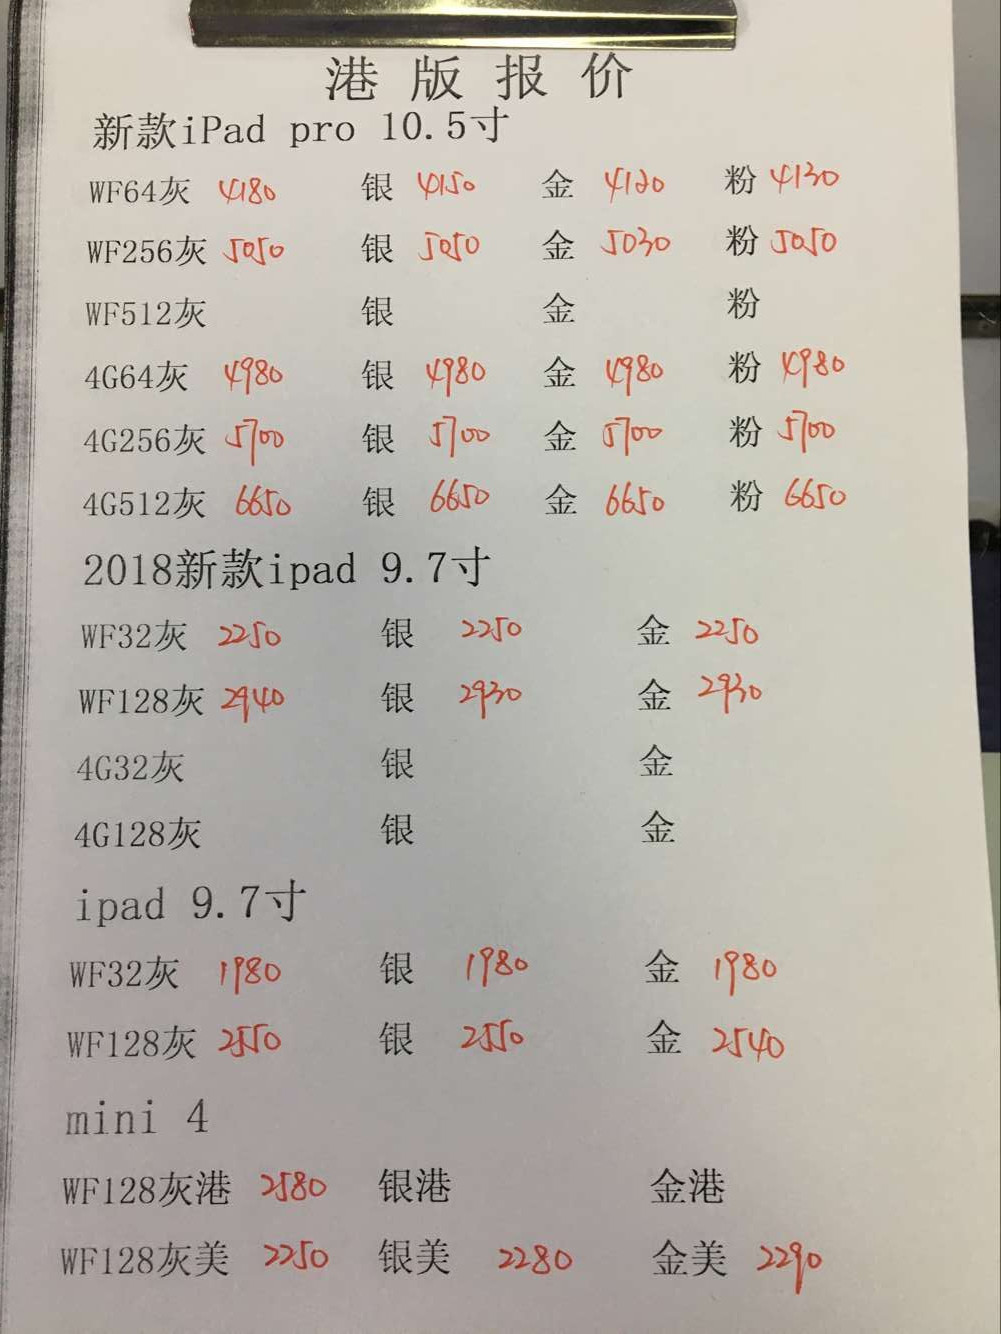 港版报价
新款iPad pro 10.5寸
WF64灰 4180 银 4150 金 4120 粉 4130
WF256灰 5050 银 5050 金 5030 粉 5050
WF512灰 银 金 粉
4G64灰 4980 银 4980 金 4980 粉 4980
4G256灰 5700 银 5700 金 5700 粉 5700
4G512灰 6650 银 6650 金 6650 粉 6650
2018新款ipad 9.7寸
WF32灰 2250 银 2250 金 2250
WF128灰 2940 银 2930 金 2930
4G32灰 银 金
4G128灰 银 金
ipad 9.7寸
WF32灰 1980 银 1980 金 1980
WF128灰 2550 银 2550 金 2540
mini 4
WF128灰港 2580 银港 金港
WF128灰美 2250 银美 2280 金美 2290